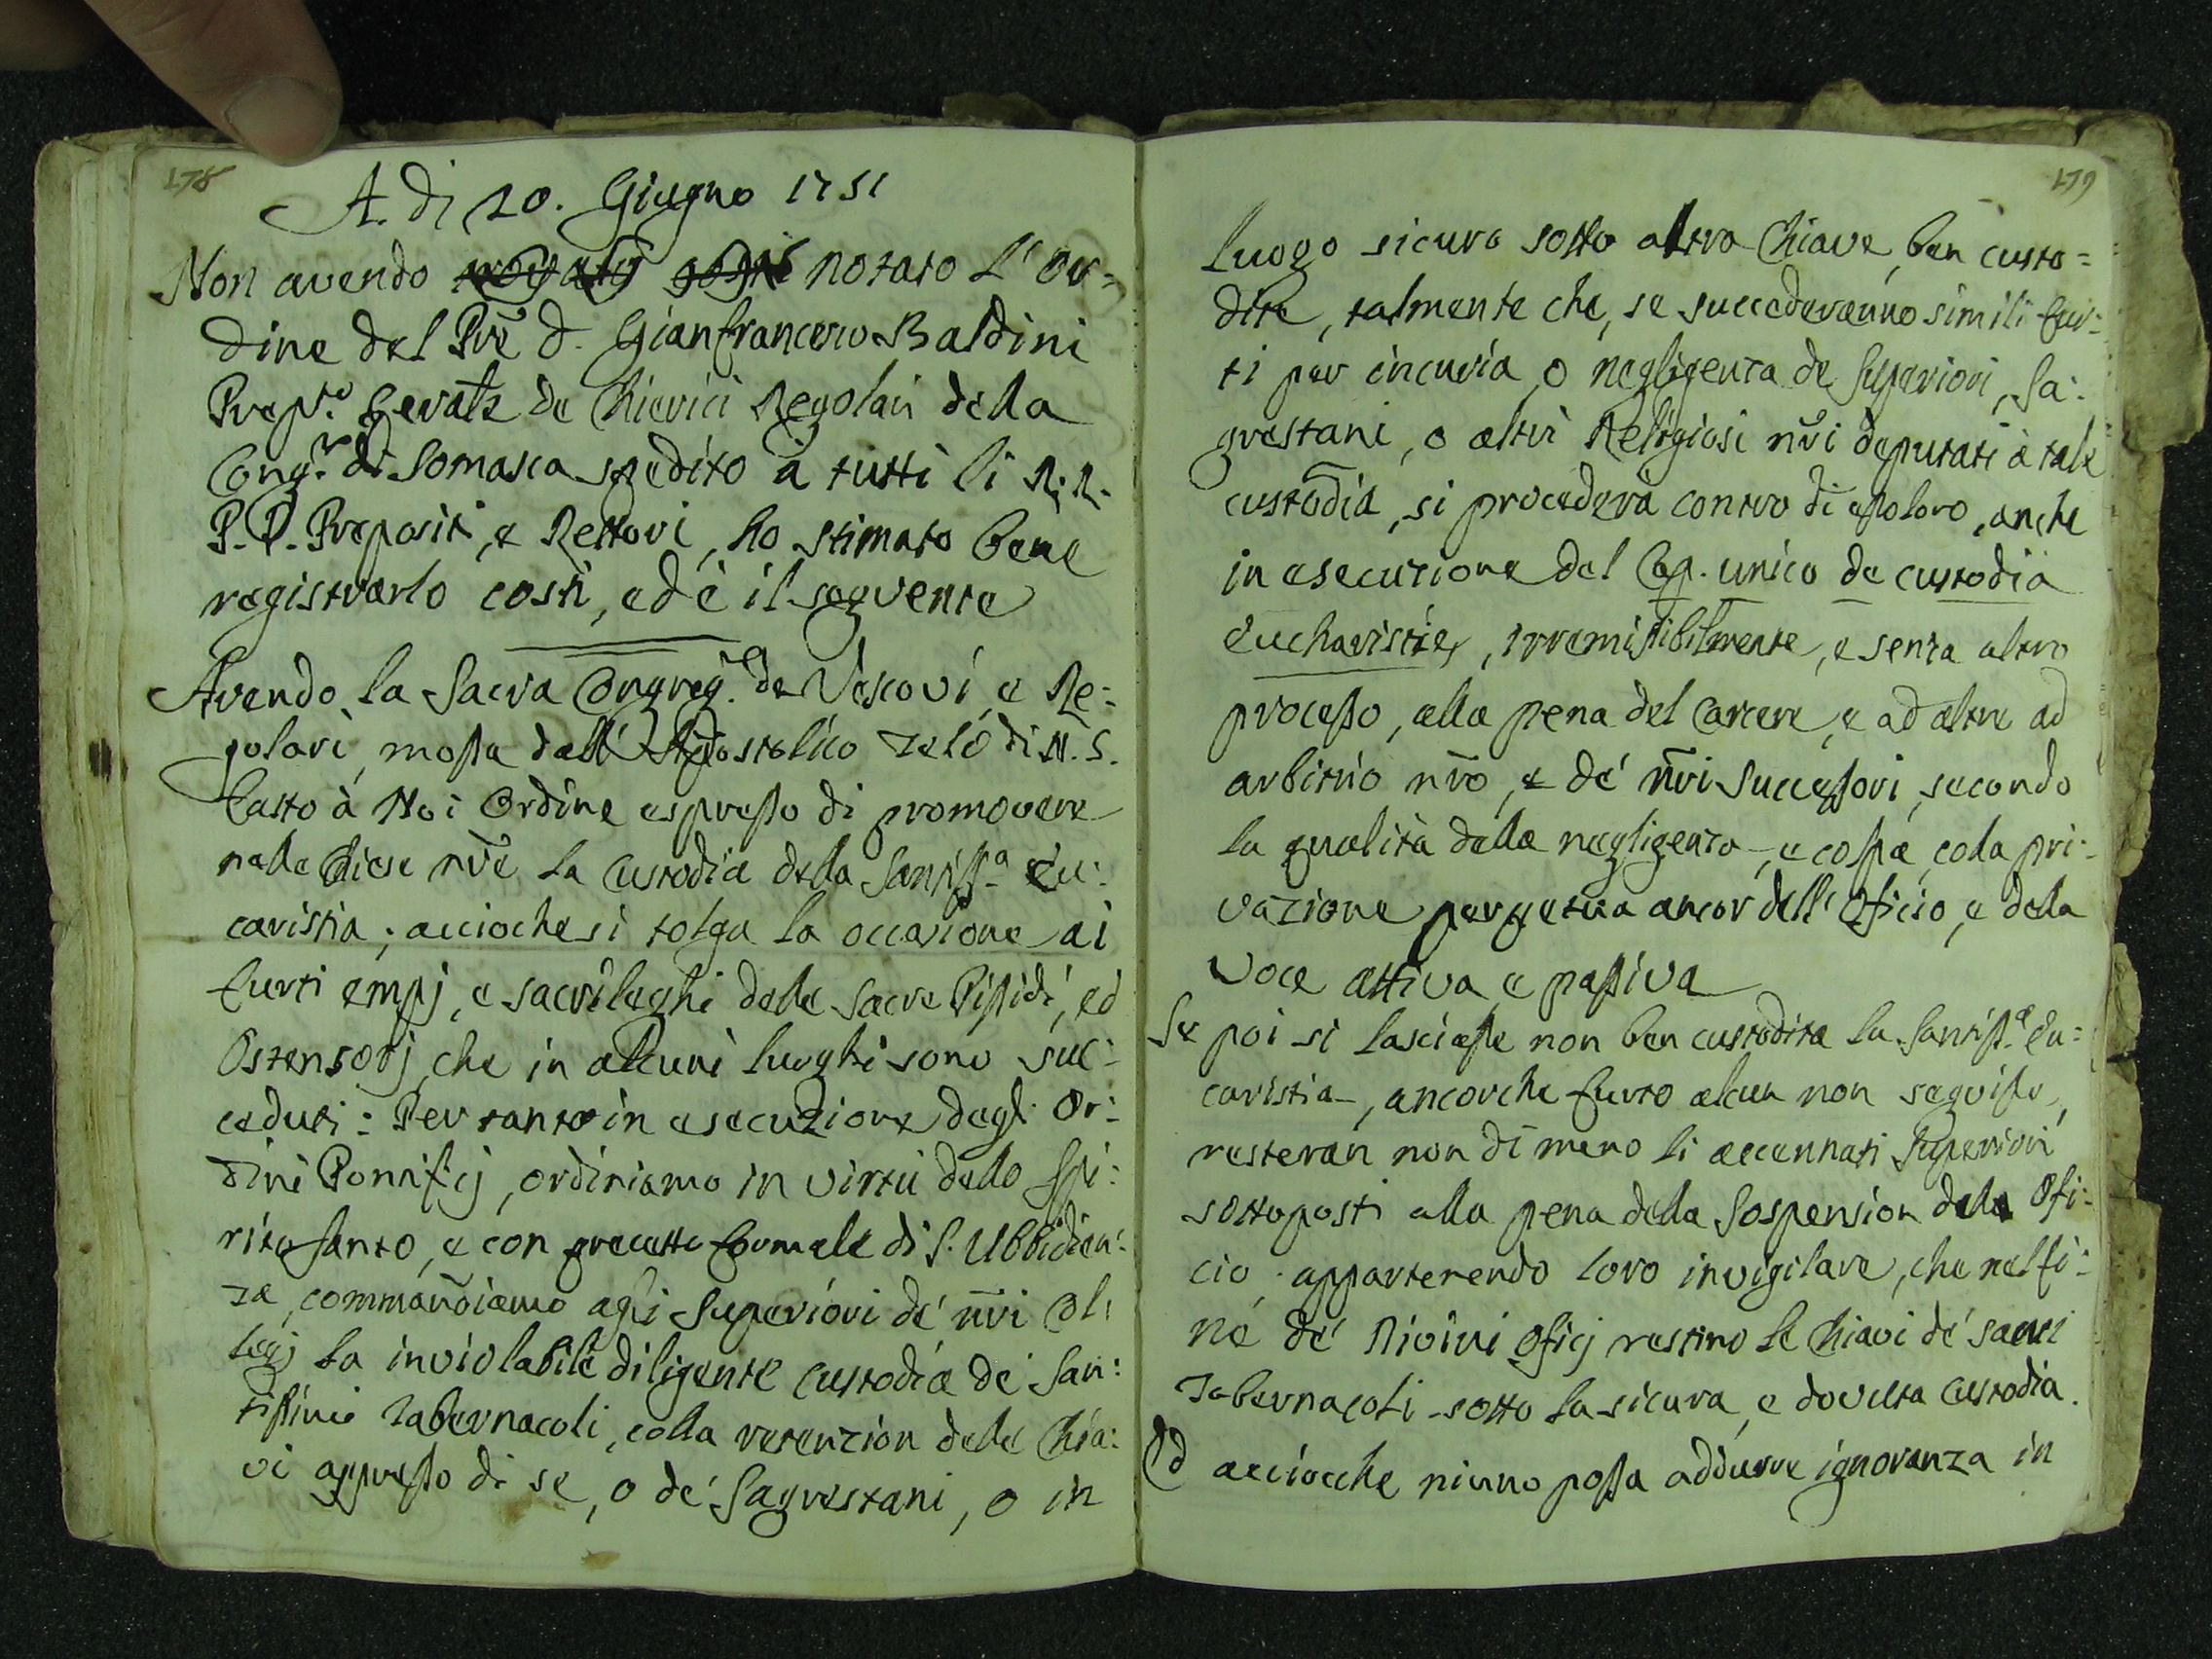 178
A. di 20. Giugno 1751
Non avendo notato l'Or=
dine del Pre D. Gianfrancesco Baldini
Prepto. Gerale de Chierici Regolari della
Congne. di Somasca spedito à tutti li R.R.
P.P. Prepositi, e Rettori, ho stimato bene
registrarlo costì, ed è il seguente
Avendo la Sacra Congregne. de Vescovi, e Re=
golari, mossa dall' Apostolico zelo di N.S.
fatto à Noi Ordine espresso di promovere
nelle Chiese nre la Custodia della Santissa. Eu:
caristia; accioche si tolga la occasione ai
furti empj, e sacrileghi delle Sacre Pissidi, ed
Ostensorj, che in alcuni luoghi sono suc:
ceduti: Per tanto in esecuzione degli Or:
dini Pontificj, ordiniamo in virtù dello Spi:
rito Santo, e con precetto formale di S. Ubbidien:
za, commandiamo agli Superiori de' nri Col:
legj la inviolabile diligente custodia de' San:
tissimi Tabernacoli, colla retenzion delle Chia:
vi appresso di se, o de' Sagrestani, o in
179
luogo sicuro sotto altra Chiave, ben custo=
dite, talmente che, se succederanno simili fur:
ti per incuria, o negligenza de Superiori, Sa:
grestani, o altri Religiosi nri deputati à tale
custodia, si procederà contro di essoloro, anche
in esecuzione del Cap. unico de custodia
Eucharistiæ, irremissibilmente, e senza altro
processo, alla pena del Carcere, e ad altre ad
arbitrio nro, e de' nri Successori, secondo
la qualità della negligenza, e colpa, colla pri:
vazione perpetua ancor dell' Oficio, e della
Voce attiva e passiva
Se poi si lasciasse non ben custodita la Santissa. Eu=
caristia, ancorche furto alcun non seguisse,
resteran non di meno li accennati Superiori
sottoposti alla pena della Sospension dell' Ofi:
cio, appartenendo loro invigilare, che nel fi:
ne de' Divini Oficj restino le Chiavi de' sacri
Tabernacoli sotto la sicura, e dovuta Custodia.
Ed acciocche niuno possa addurre ignoranza in